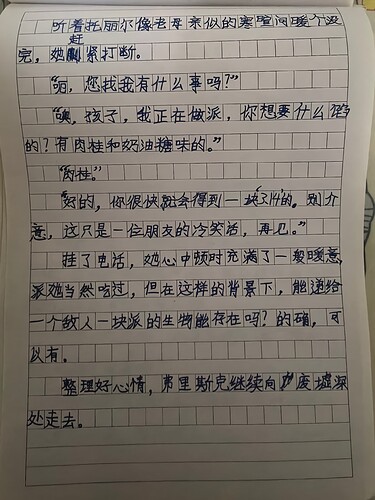 听着托丽尔像老母亲似的寒喧问暖个没
完，她赶紧打断。
“呃，您找我有什么事吗？”
“噢，孩子，我正在做派，你想要什么馅
的？有肉桂和奶油糖味的。”
“肉桂。”
“好的，你很快就会得到一块“3.14”的。别介
意，这只是一位朋友的冷笑话，再见。”
挂了电话，她心中顿时充满了一股暖意，
派她当然吃过，但在这样的背景下，能递给
一个敌人一块派的生物能存在吗？的确，可
以有。
整理好心情，弗里斯克继续向废墟深
处走去。